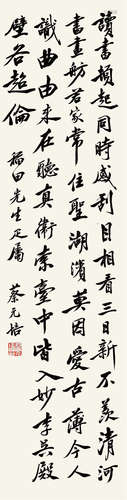 讀書頓起同時感刮目相看三日新不羨清河
書畫舫君家常住聖湖濱莫因愛古薄今人
識曲由來在聽真衛索臺中皆入妙李吳殿
壁各超倫 稻田先生正屬 蔡元培